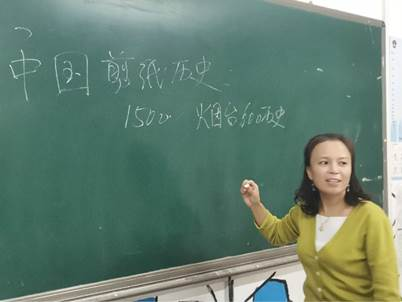 中国剪纸历史
1500 烟台 历史